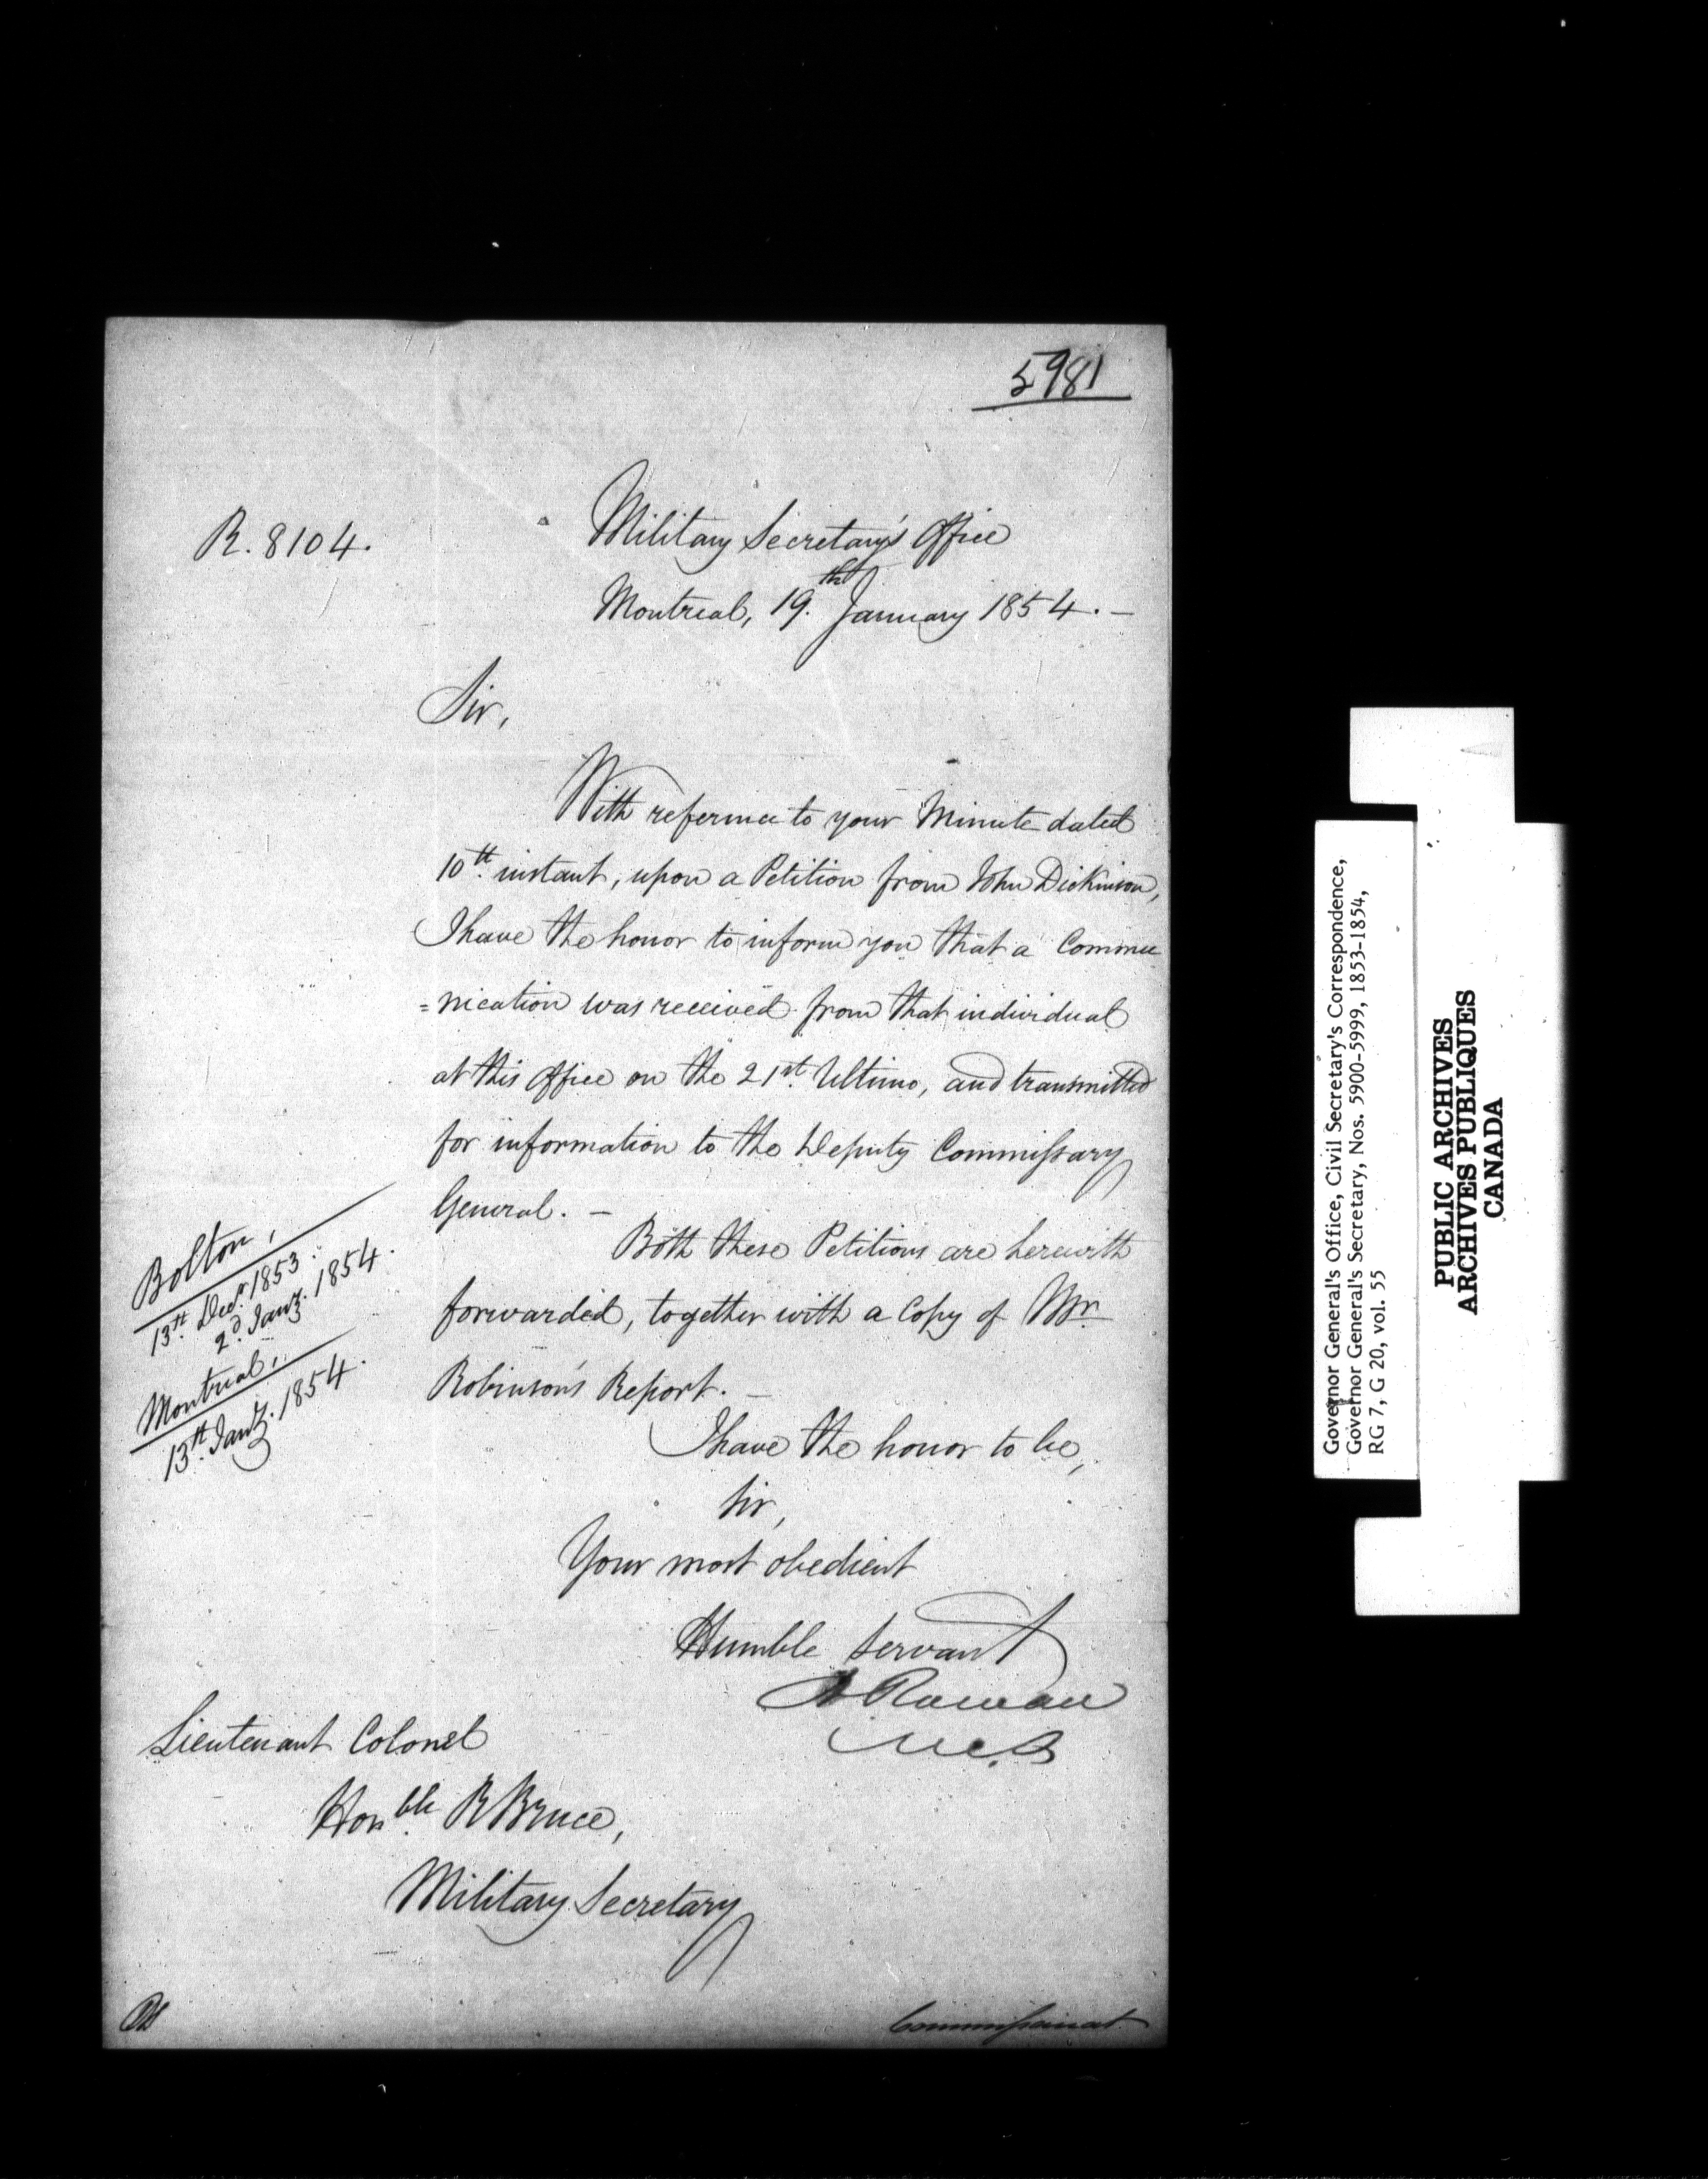 5981
R. 8104.
Military Secretary's Office
Montreal, 19.th January 1854. –
Sir,
With reference to your Minute dated
10th. instant, upon a Petition from John Dickinson,
I have the honor to inform you that a Commu
=nication was received from that individual
at this Office on the 21st. Ultimo, and transmitted
for information to the Deputy Commissary
General. –
Both these Petitions are herewith
forwarded, together with a Copy of Mr
Robinson's Report. –
Bolton,
13th. Decr. 1853.
2d. Jany. 1854.
Montreal,
13th. Jany. 1854.
I have the honor to be,
Sir,
Your most obedient
Humble Servant
Rowan
Lieutenant Colonel
Honble. R Bruce,
Military Secretary
Commissariat.
Governor General's Office, Civil Secretary's Correspondence,
Governor General's Secretary, Nos. 5900-5999, 1853-1854,
RG 7, G 20, vol. 55
PUBLIC ARCHIVES
ARCHIVES PUBLIQUES
CANADA